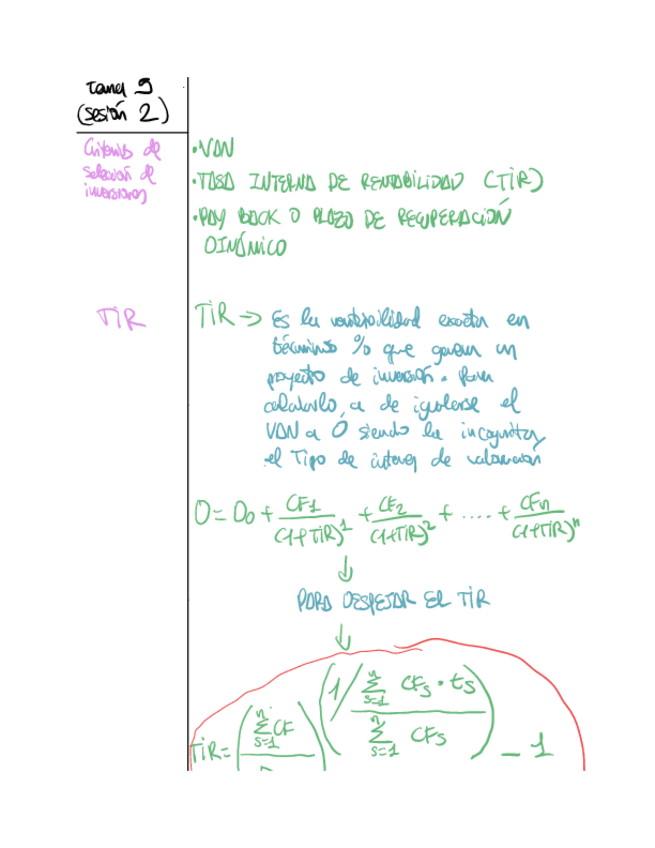 Tema 9
(sesión 2)
Criterios de
selección de
inversiones
•VAN
•TASA INTERNA DE RENTABILIDAD (TIR)
•PAY BACK O PLAZO DE RECUPERACIÓN
DINÁMICO
TIR
TIR → Es la rentabilidad exacta en
términos % que genera un
proyecto de inversión. Para
calcularlo, a de igualarse el
VAN a 0 siendo la incognita,
el Tipo de interes de valoración
0 = D₀ + CF1/(1+TIR)^1 + CF2/(1+TIR)^2 + .... + CFn/(1+TIR)^n
↓
PARA DESPEJAR EL TIR
↓
TIR = (∑_{s=1}^{n} CF / )^(1 / (∑_{s=1}^{n} CFs · ts / ∑_{s=1}^{n} CFs)) − 1